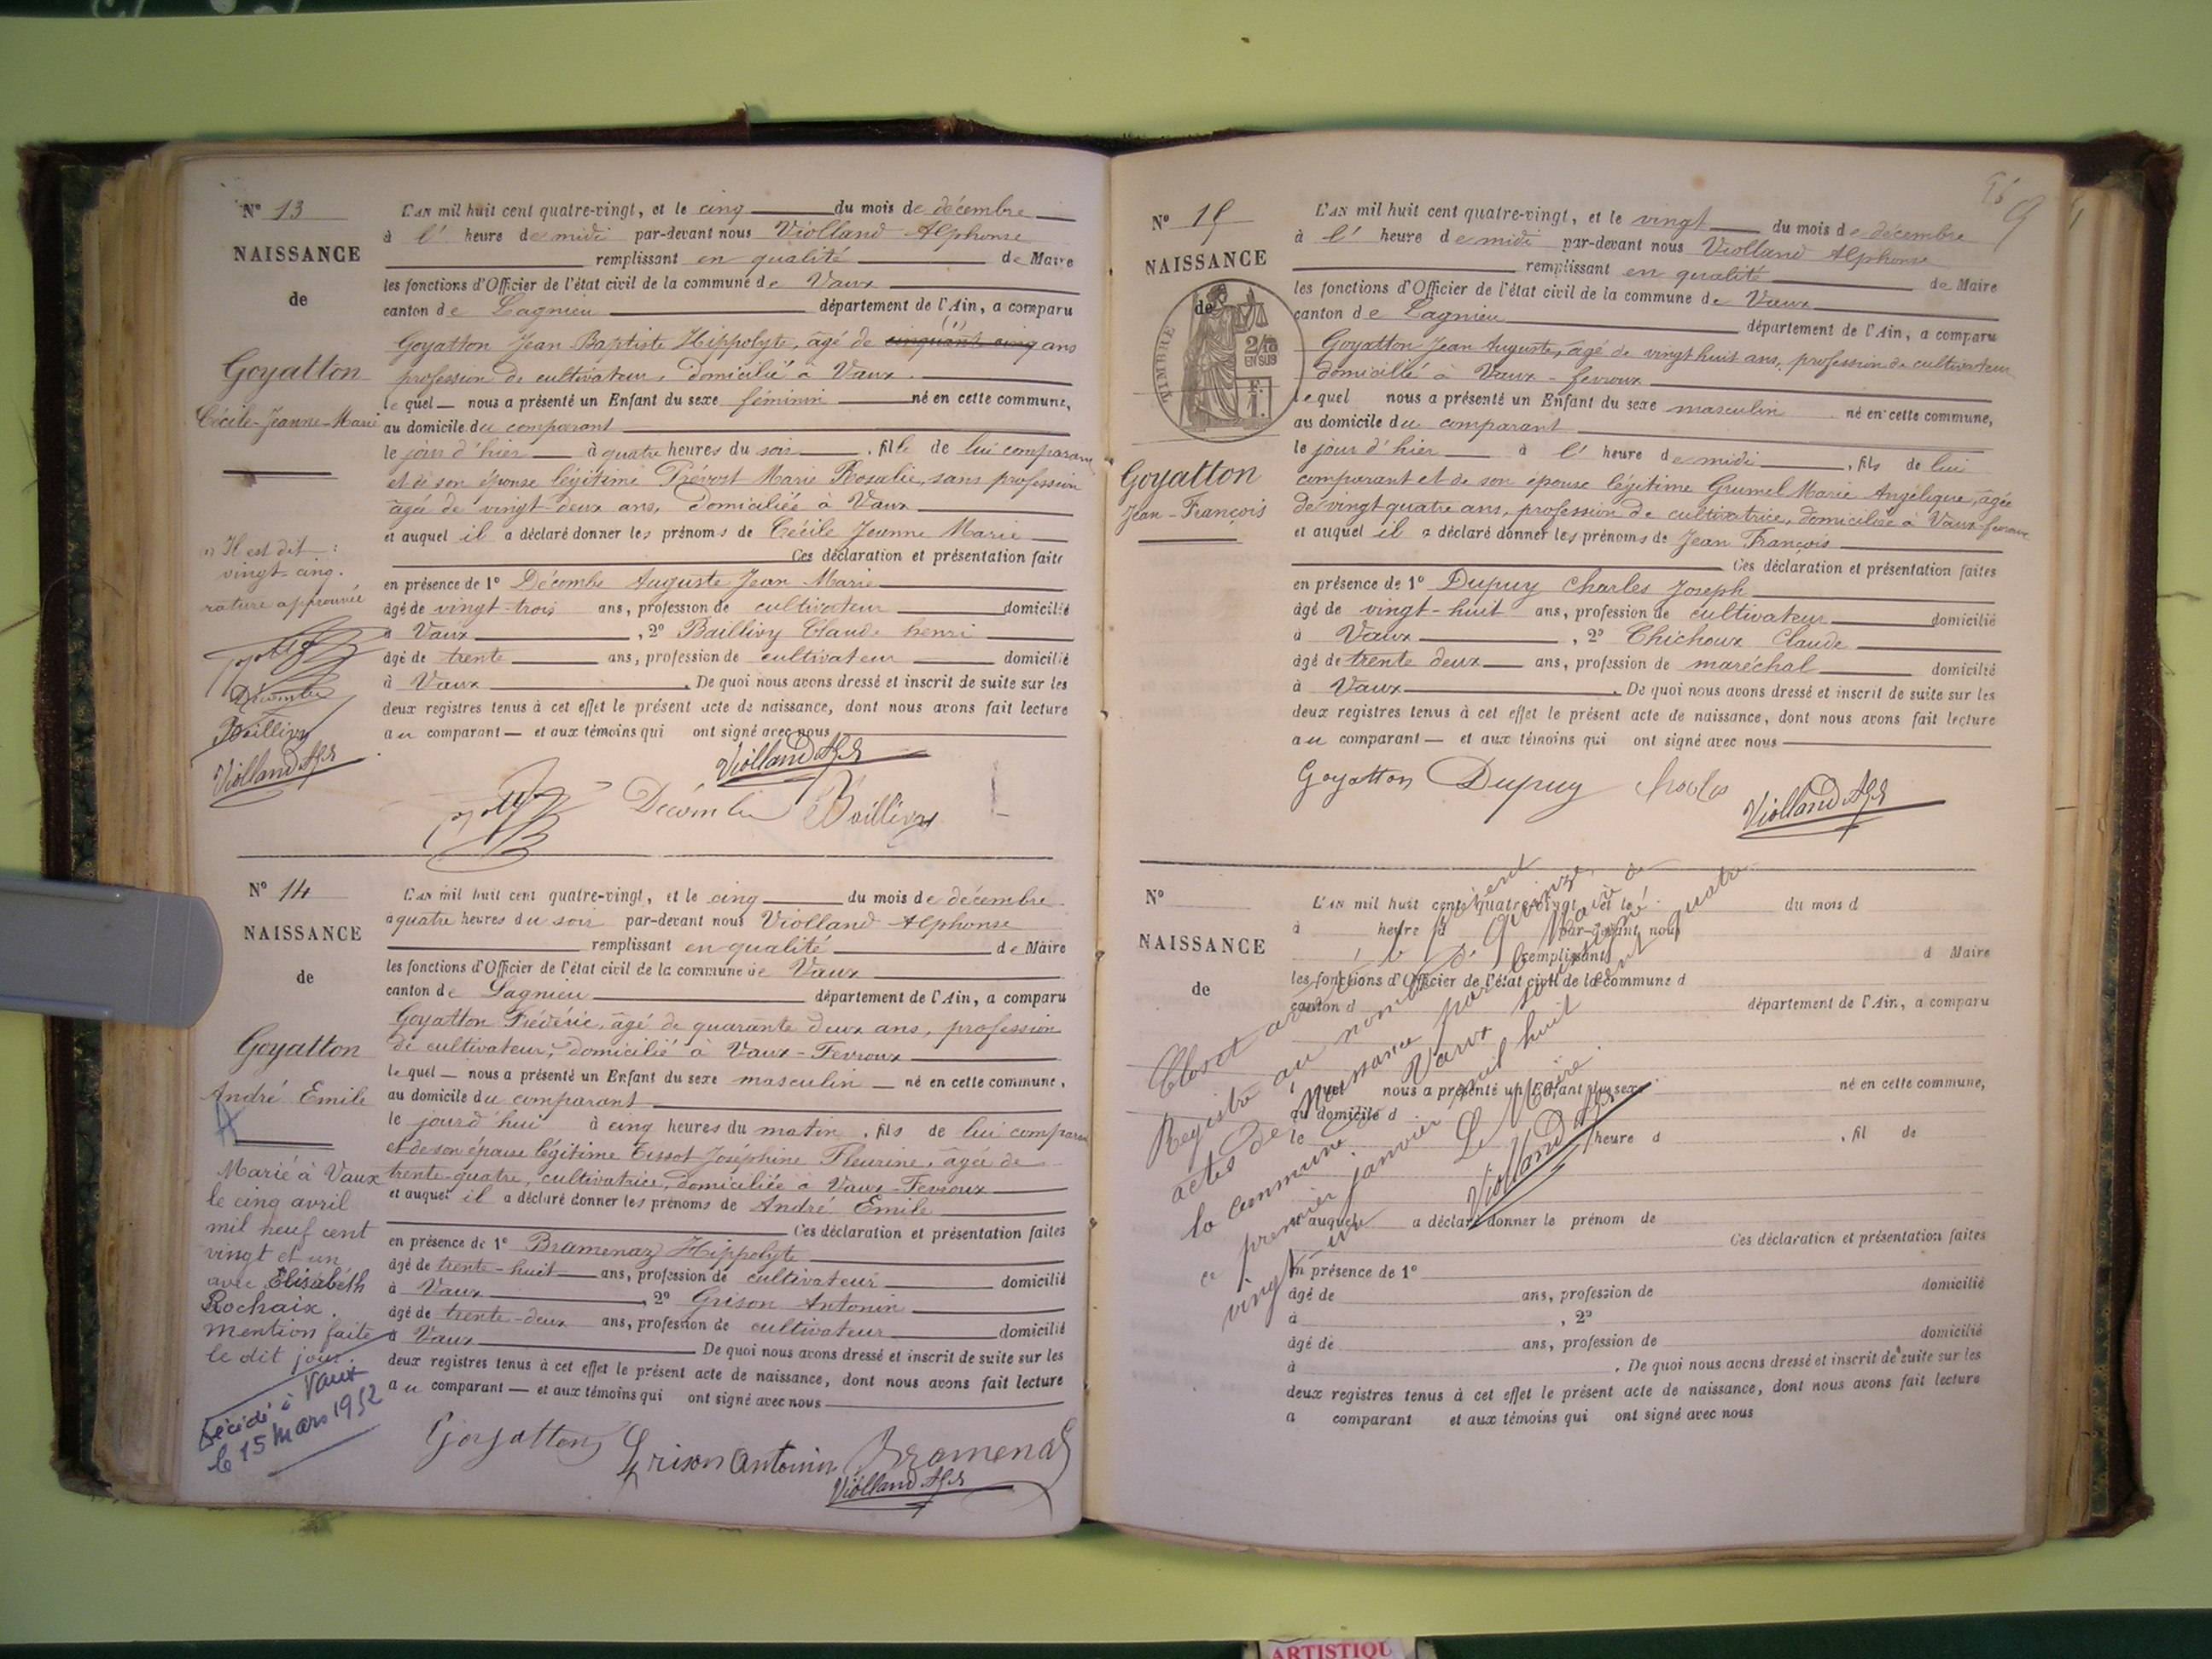 N° 13
NAISSANCE
de
Goyatton
Cécile-Jeanne-Marie
(1) Il est dit :
vingt-cinq.
rature approuvée
Décombe
Baillivy
Violland Aph
L'AN mil huit cent quatre-vingt, et le cinq du mois de décembre
à l' heure de midi par-devant nous Violland Alphonse
remplissant en qualité de Maire
les fonctions d'Officier de l'état civil de la commune de Vaux
canton de Lagnieu département de l'Ain, a comparu
(1)
Goyatton Jean Baptiste Hippolyte, âgé de cinquante cinq ans
profession de cultivateur, domicilié à Vaux.
lequel nous a présenté un Enfant du sexe féminin né en cette commune,
au domicile du comparant
le jour d'hier à quatre heures du soir, fille de lui comparant
et de son épouse légitime Prévost Marie Rosalie, sans profession
âgée de vingt-deux ans, domiciliée à Vaux
et auquel il a déclaré donner les prénoms de Cécile Jeanne Marie
Ces déclaration et présentation faite
en présence de 1° Décombe Auguste Jean Marie
âgé de vingt-trois ans, profession de cultivateur domicilié
à Vaux, 2° Baillivy Claude henri
âgé de trente ans, profession de cultivateur domicilié
à Vaux. De quoi nous avons dressé et inscrit de suite sur les
deux registres tenus à cet effet le présent acte de naissance, dont nous avons fait lecture
au comparant — et aux témoins qui ont signé avec nous
Violland Aph
Décombe Baillivy
N° 14
NAISSANCE
de
Goyatton
André Emile
Marié à Vaux
le cinq avril
mil neuf cent
vingt et un
avec Elisabéth
Rochaix.
mention faite
le dit jour.
Décédé à Vaux
le 15 Mars 1952
L'AN mil huit cent quatre-vingt, et le cinq du mois de décembre
à quatre heures du soir par-devant nous Violland Alphonse
remplissant en qualité de Maire
les fonctions d'Officier de l'état civil de la commune de Vaux
canton de Lagnieu département de l'Ain, a comparu
Goyatton Frédéric, âgé de quarante deux ans, profession
de cultivateur, domicilié à Vaux-Fevroux
lequel — nous a présenté un Enfant du sexe masculin — né en cette commune,
au domicile du comparant
le jourd'hui à cinq heures du matin, fils de lui comparant
et de son épouse légitime Tissot Joséphine Fleurine, âgée de
trente-quatre, cultivatrice, domiciliée à Vaux-Fevroux
et auquel il a déclaré donner les prénoms de André Emile
Ces déclaration et présentation faites
en présence de 1° Bramenaz Hippolyte
âgé de trente-huit ans, profession de cultivateur domicilié
à Vaux, 2° Grison Antonin
âgé de trente-deux ans, profession de cultivateur domicilié
à Vaux. De quoi nous avons dressé et inscrit de suite sur les
deux registres tenus à cet effet le présent acte de naissance, dont nous avons fait lecture
au comparant — et aux témoins qui ont signé avec nous
Goyatton Grison Antonin Bramenaz
Violland Aph
N° 15
NAISSANCE
de
TIMBRE
2/10
EN SUS
F.
1.
Goyatton
Jean-François
L'AN mil huit cent quatre-vingt, et le vingt du mois de décembre
à l' heure de midi par-devant nous Violland Alphonse
remplissant en qualité de Maire
les fonctions d'Officier de l'état civil de la commune de Vaux
canton de Lagnieu département de l'Ain, a comparu
Goyatton Jean Auguste, âgé de vingt huit ans, profession de cultivateur
domicilié à Vaux-fevroux
lequel nous a présenté un Enfant du sexe masculin né en cette commune,
au domicile du comparant
le jour d'hier à l' heure de midi, fils de lui
comparant et de son épouse légitime Grumel Marie Angélique, âgée
de vingt quatre ans, profession de cultivatrice, domiciliée à Vaux-fevroux
et auquel il a déclaré donner les prénoms de Jean François
Ces déclaration et présentation faites
en présence de 1° Dupuy Charles Joseph
âgé de vingt-huit ans, profession de cultivateur domicilié
à Vaux, 2° Chichoux Claude
âgé de trente deux ans, profession de maréchal domicilié
à Vaux. De quoi nous avons dressé et inscrit de suite sur les
deux registres tenus à cet effet le présent acte de naissance, dont nous avons fait lecture
au comparant — et aux témoins qui ont signé avec nous
Goyatton Dupuy Charles
Violland Aph
N°
NAISSANCE
de
L'AN mil huit cent quatre-vingt, et le du mois d
à heure d par-devant nous
remplissant d Maire
les fonctions d'Officier de l'état civil de la commune d
canton d département de l'Ain, a comparu
lequel nous a présenté un Enfant du sexe né en cette commune,
au domicile d
le heure d , fil de
et auquel a déclaré donner le prénom de
Ces déclaration et présentation faites
en présence de 1°
âgé de ans, profession de domicilié
à , 2°
âgé de ans, profession de domicilié
à . De quoi nous avons dressé et inscrit de suite sur les
deux registres tenus à cet effet le présent acte de naissance, dont nous avons fait lecture
a comparant et aux témoins qui ont signé avec nous
Clos et arrêté le présent
Registre au nombre de quinze
actes de Naissance par le Maire de
la commune de Vaux soussigné
ce premier janvier mil huit cent quatre
vingt-un
Le Maire.
Violland Aph
ARTISTIQU